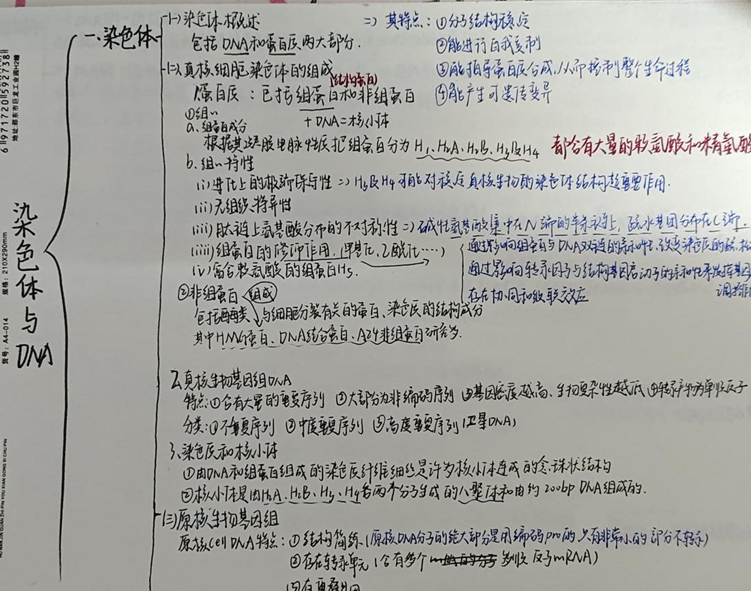 染色体与DNA
一.染色体
(一)染色体概述
包括DNA和蛋白质两大部分.
=) 其特点：①分子结构稳定
②能进行自我复制
③能指导蛋白质合成,从而控制整个生命过程
④能产可遗传变异
(二)真核细胞染色体的组成
(结构蛋白)
1.蛋白质：包括组蛋白和非组蛋白
①组蛋白
+DNA=核小体
a.组蛋白成分
根据其 电泳性质把组蛋白分为 H₁、H₂A、H₂B、H₃及H₄ 都含有大量的赖氨酸和精氨酸
b.组蛋白特性
(i)进化上的极端保守性 =) H₃及H₄可能对稳定真核生物的染色体结构起重要作用.
(ii)无组织特异性
(iii)肽链上氨基酸分布的不对称性 =) 碱性氨基酸集中在N端的半条链上，疏水基团分布在C端.
(iiii)组蛋白的修饰作用.(甲基化、乙酰化……)
通过影响组蛋白与DNA双链的亲和性,改变染色质的
通过影响转录因子与结构基因启动子的亲和性来发挥基因
调控
存在协同和级联效应
(iv)富含赖氨酸的组蛋白H₅.
②非组蛋白 组成
包括酶类、与细胞分裂有关的蛋白、染色质的结构成分
其中HMG蛋白、DNA结合蛋白、A24非组蛋白研究多.
2.真核生物基因组DNA
特点:①含有大量的重复序列 ②大部分为非编码序列 ③基因密度越高、生物复杂性越低 ④转录产物为单顺反子
分类:①不重复序列 ②中度重复序列 ③高度重复序列(卫星DNA)
3.染色质和核小体
①由DNA和组蛋白组成的染色质纤维细丝是许多核小体连成的念珠状结构
②核小体是由H₂A、H₂B、H₃、H₄各两个分子组成的八聚体和由约200bp DNA组成的.
(三)原核生物基因组
原核cell DNA特点：①结构简练(原核DNA分子的绝大部分是用编码pro的,只有非常小的部分不转录)
②存在转录单元(含有多个 顺反子mRNA)
③有重叠基因
6 971720 592738
地址:邵东市巨龙工业园H2幢
规格: 210X290mm
货号: A4-014